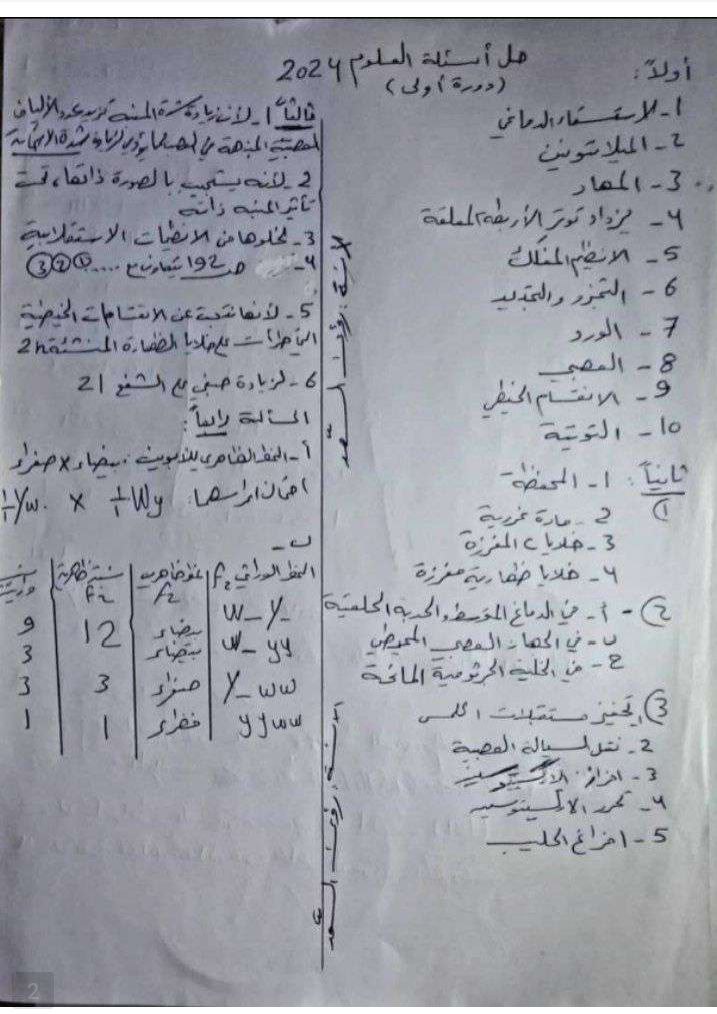 حل أسئلة العلوم 2024
(دورة أولى)
أولاً:
1- الاستسقاء الدماغي
2- الميلاتونين
3- المهاد
4- يزداد توتر الأربطة المعلقة
5- الانظيم المفكك
6- التجزؤ والتجديد
7- الورد
8- العصبي
9- الانقسام الخيطي
10- التوتية
ثانياً: 1- المحفظة
①
2- مادة غروية
3- خلايا C المفرزة
4- خلايا ظهارية مفرزة
② - أ- في الدماغ المتوسط والحدبة الحلقية
ب- في الجهاز العصبي المحيطي
ج- في الخلية الجرثومية المانحة
③ 1- تحفيز مستقبلات اللمس
2- نقل السيالة العصبية
3- افراز الأوكسيتوسين
4- تحرر الأوكسيتوسين
5- افراغ الحليب
ثالثاً 1- لأن زيادة شدة المنبه تزيد عدد الألياف
العصبية المنبهة في العصب مما يؤدي لزيادة شدة الاستجابة
2- لأنه يستجيب بالصورة ذاتها، تحت
تأثير المنبه ذاته
3- لخلوها من الانظيمات الاستقلابية
4- ص 192 يتعاون مع .... ① ② ③
5- لأنها نتجت عن الانقسامات الخيطية
التي طرأت على خلايا الظهارة المنشئة 2n
6- لزيادة صبغي على الشفع 21
المسألة رابعاً:
أ- النمط الظاهري للأبوين: بيضاء x صفراء
احتمال اعراسهما: 1/1 Wy x 1/1 Yw
ب-
النمط الوراثي F2 | نمط ظاهري F2 | نسبة ظاهرية F2
W-Y- بيضاء 12 9
W-yy بيضاء 3
Y-ww صفراء 3 3
yyww خضراء 1 1
2